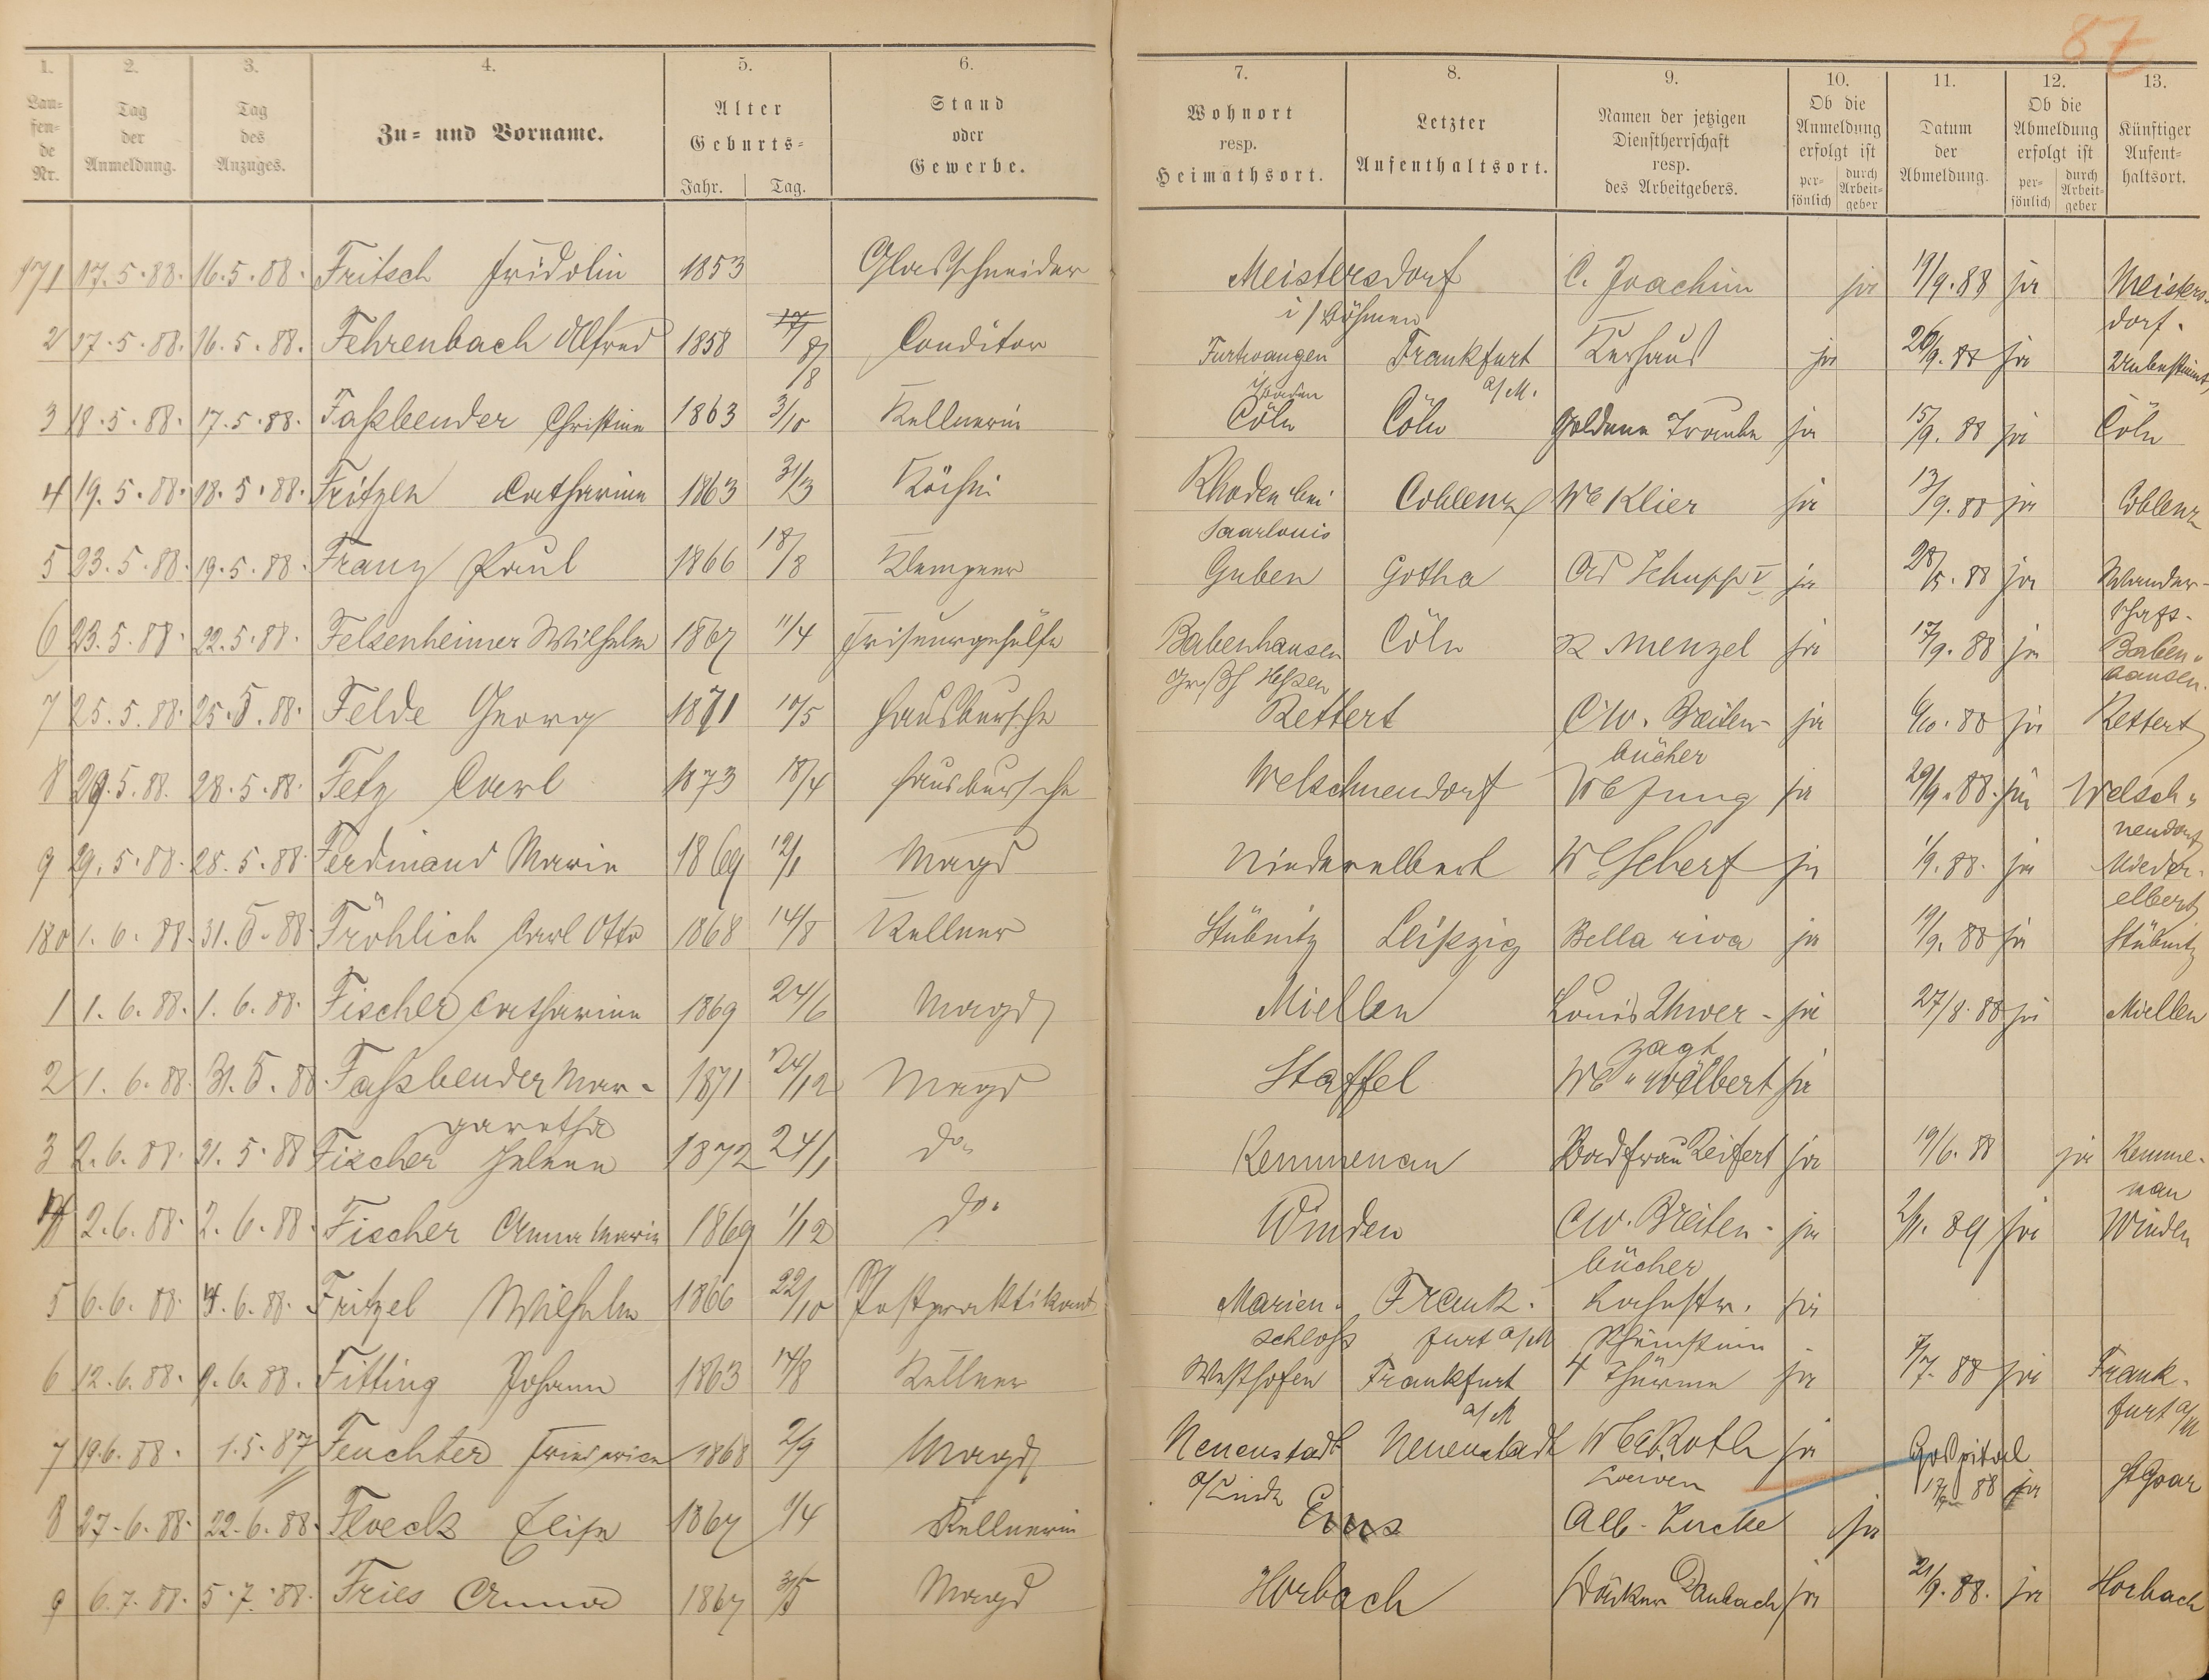 87
1. 2. 3. 4. 5. 6. 7. 8. 9. 10. 11. 12. 13.
Laufende Nr. | Tag der Anmeldung. | Tag des Anzuges. | Zu- und Vorname. | Alter Geburts- Jahr. Tag. | Stand oder Gewerbe. | Wohnort resp. Heimathsort. | Letzter Aufenthaltsort. | Namen der jetzigen Dienstherrschaft resp. des Arbeitgebers. | Ob die Anmeldung erfolgt ist persönlich durch Arbeitgeber | Datum der Abmeldung. | Ob die Abmeldung erfolgt ist persönlich durch Arbeitgeber | Künftiger Aufenthaltsort.
171 17.5.88. 16.5.88. Fritsch Fridolin 1853 Glasschneider Meistersdorf i/Böhmen C. Joachim ja 19/9.88 ja Meistersdorf.
2 17.5.88. 16.5.88. Fehrenbach Alfred 1858 8/8 Conditor Furtwangen i/Baden Frankfurt a/M. Kurhaus ja 26/9.88 ja Unbestimmt
3 18.5.88. 17.5.88. Faßbender Christine 1863 3/10 Kellnerin Cöln Cöln Goldene Traube ja 15/9.88 ja Cöln
4 19.5.88. 18.5.88. Fritzen Catharina 1863 31/3 Köchin Rhoden bei Saarlouis Coblenz We Klier ja 13/9.88 ja Coblenz
5 23.5.88. 19.5.88. Franz Paul 1866 18/8 Klempner Guben Gotha Ad Schupp V ja 28/5.88 ja Wanderschaft.
6 23.5.88. 22.5.88. Felsenheimer Wilhelm 1867 11/4 Friseurgehülfe Babenhausen Großh Hessen Cöln R Menzel ja 17/9.88 ja Babenhausen.
7 25.5.88. 25.5.88. Felde Georg 1871 10/5 Hausbursche Rettert C.W. Breitenbücher ja 6/10.88 ja Rettert
8 29.5.88. 28.5.88. Fetz Carl 1873 18/4 Hausbursche Welschnendorf We Jung ja 29/9.88. ja Welschnendorf
9 29.5.88. 28.5.88. Ferdinand Marie 1869 12/1 Magd Niederelbert We Scherf ja 1/9.88. ja Niederelbert
180 1.6.88. 31.5.88. Fröhlich Carl Otto 1868 14/8 Kellner Stübnitz Leipzig Bella riva ja 19/9.88 ja Stübnitz
1 1.6.88. 1.6.88. Fischer Catharina 1869 24/6 Magd Miellen Louis Unverzagt ja 27/8.88 ja Miellen
2 1.6.88. 31.5.88. Faßbender Margaretha 1871 24/12 Magd Staffel We Wälbert ja
3 2.6.88. 31.5.88 Fischer Helene 1872 24/1 do. Kemmenau Badfrau Reifert ja 19/6.88 ja Kemmenau
4 2.6.88. 2.6.88. Fischer Anna Maria 1869 1/12 do. Winden C.W. Breitenbücher ja 2/1.89 ja Winden
5 6.6.88. 4.6.88. Fritzel Wilhelm 1866 22/10 Postpraktikant Marienschloß Frankfurt a/M Lahnstr. Rheinstein ja
6 12.6.88. 9.6.88. Fitting Johann 1863 14/8 Kellner Westhofen Frankfurt a/M 4 Thürme ja 7/7.88 ja Frankfurt a/M
7 19.6.88. 1.5.87 Feuchter Friederica 1868 2/9 Magd Neuenstadt a/Linde Neuenstadt We Roth ja Hospital
8 27.6.88. 22.6.88. Floeck Elise 1867 1/4 Kellnerin Ems Alb. Lucke ja 88 ja St Goar
9 6.7.88. 5.7.88. Fries Anna 1867 31/5 Magd Horbach Bäcker Daubach ja 21/9.88. ja Horbach